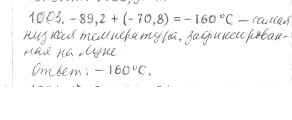 1003. -89,2 + (-70,8) = -160°C - самая
низкая температура, зафиксирован-
ная на Луне
Ответ: -160°C.